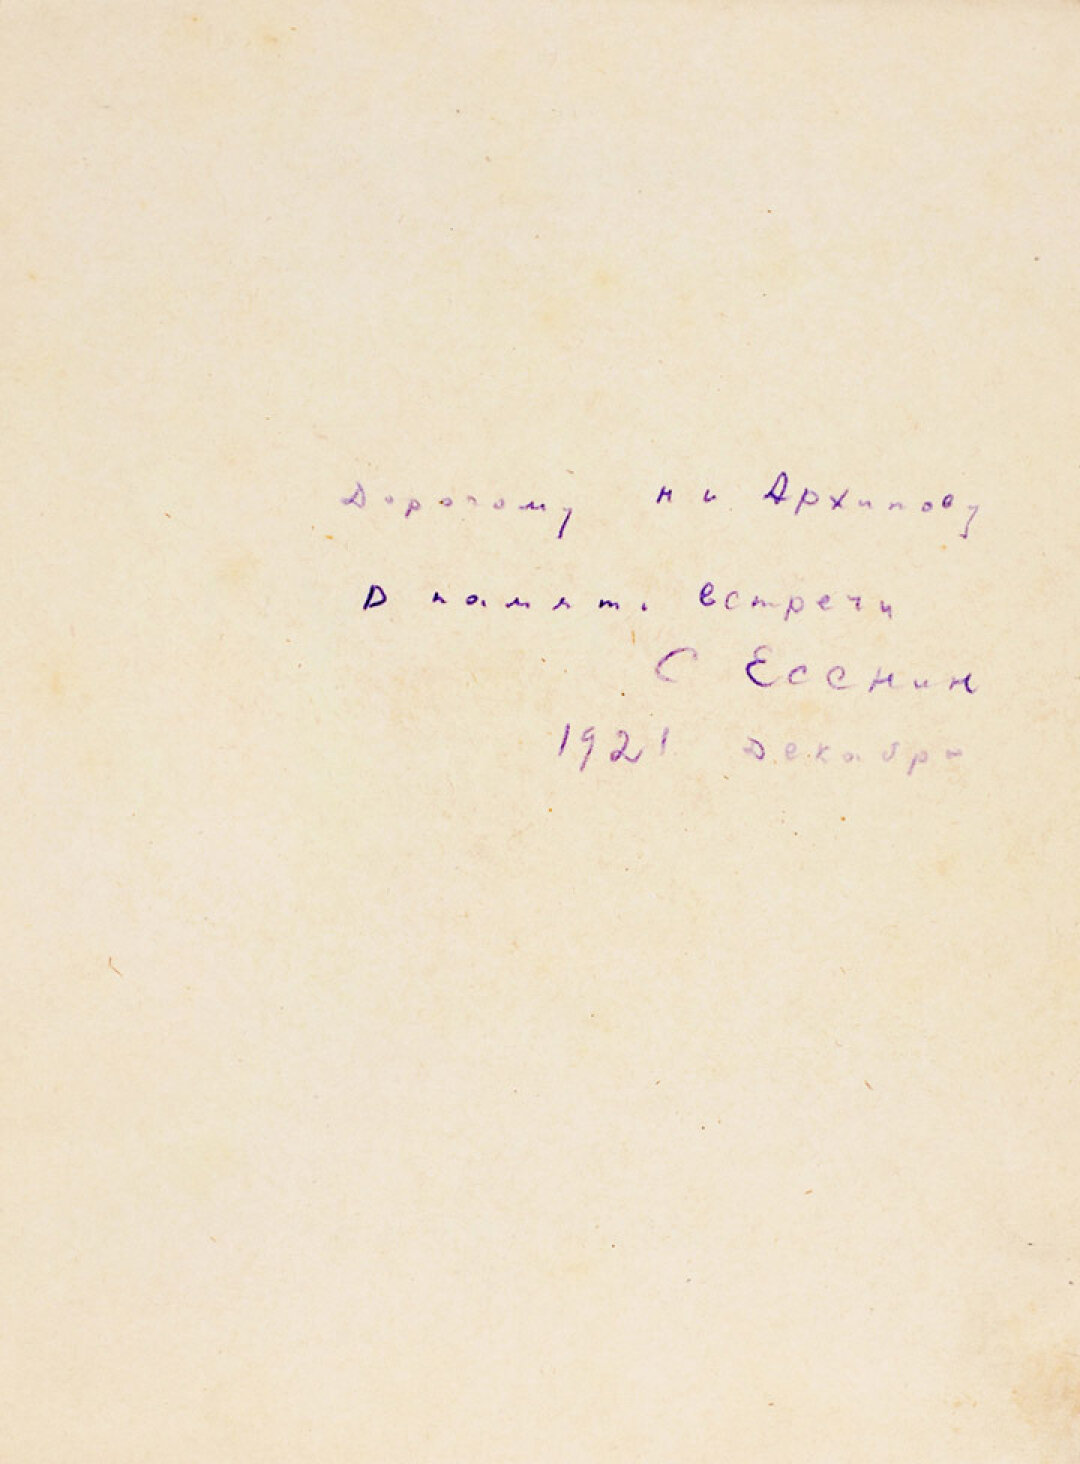 Дорогому Н И Архипову
В память встречи
С Есенин
1921 Декабрь